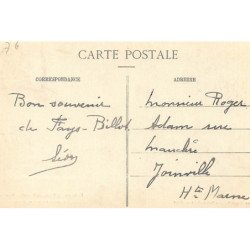 76
CARTE POSTALE
CORRESPONDANCE
ADRESSE
Bon souvenir
de Fays-Billot
Léon
Monsieur Roger
Adam rue
Joinville
Hte Marne